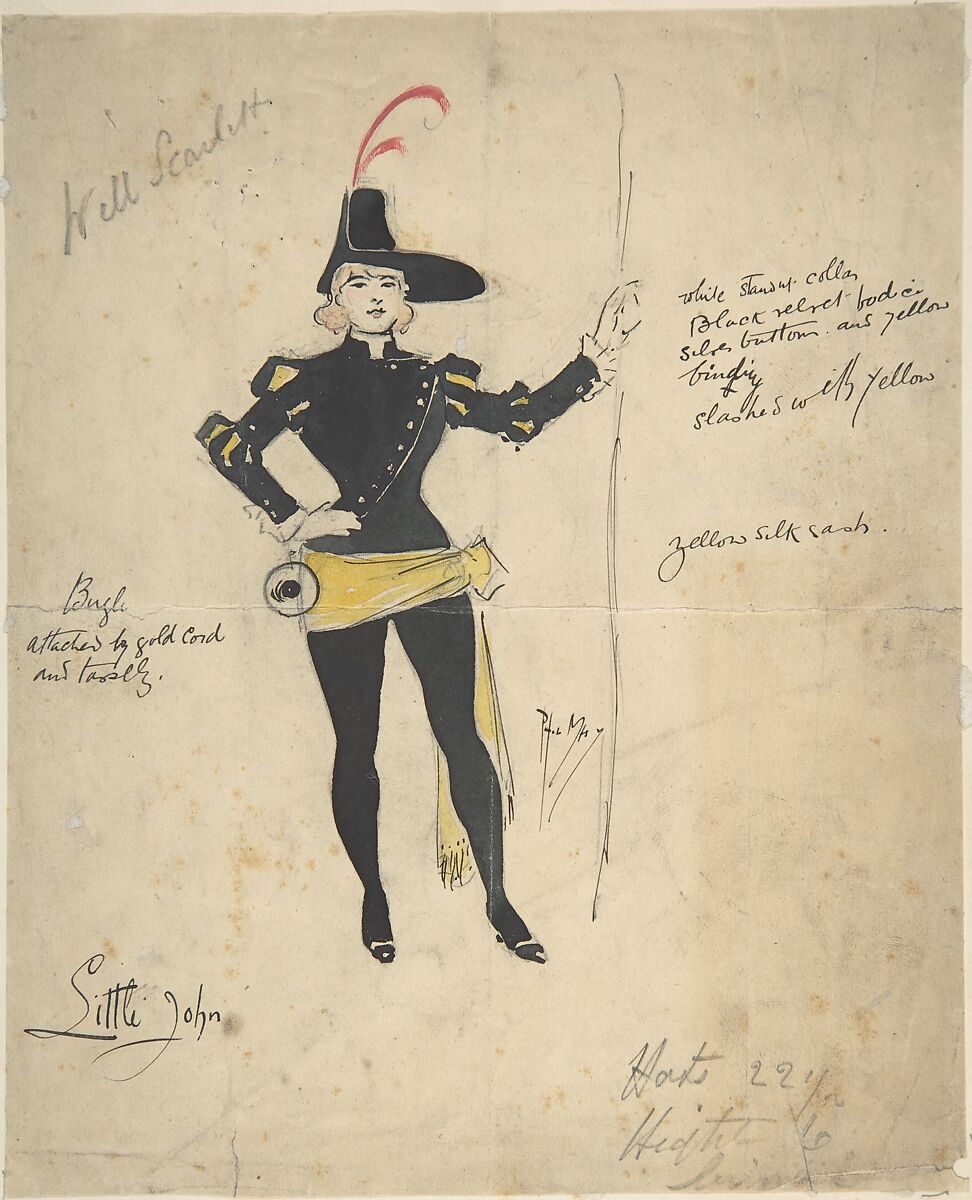 Will Scarlett.
white standup collar
Black velvet bodice
silver buttons and yellow
binding
slashed with yellow
yellow silk sash.
Bugle
attached by gold cord
and tassels.
Little John
Hats 22 1/2
Height 6